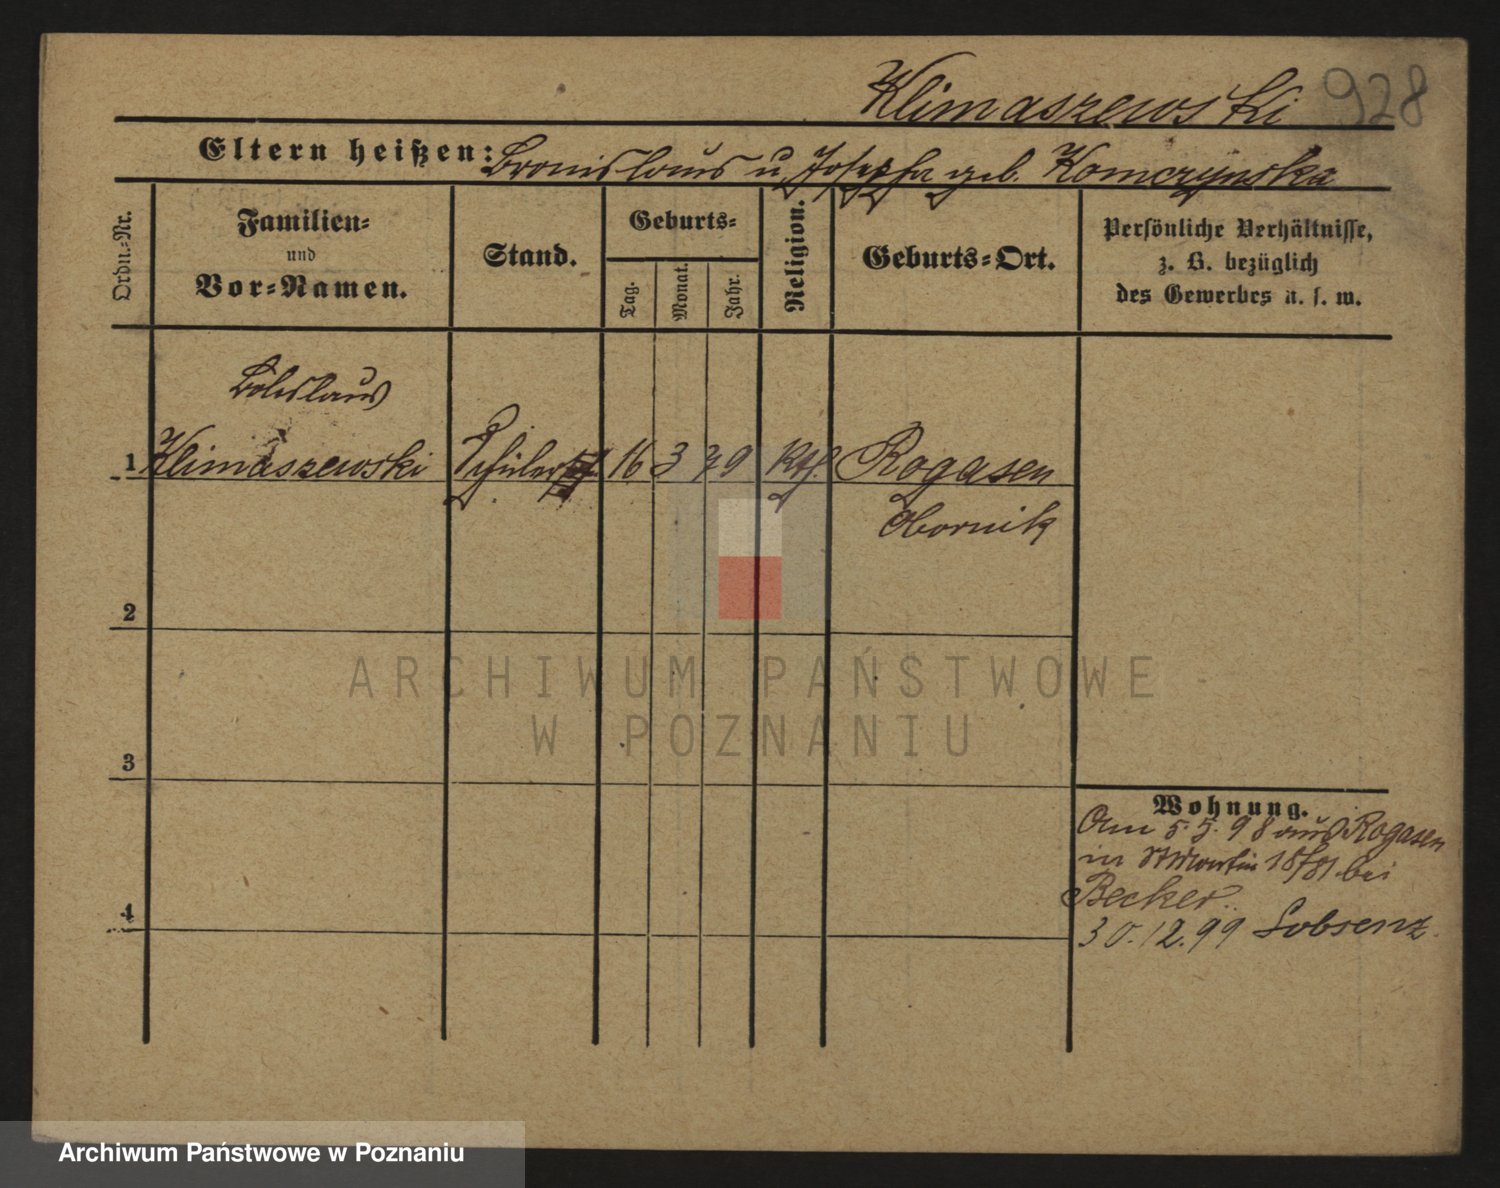 Klimaszewski 928
Eltern heißen: Bronislaus u. Josepha geb. Komczynska
Ordn.-Nr.
Familien-
und
Vor-Namen.
Stand.
Geburts-
Tag.
Monat.
Jahr.
Religion.
Geburts-Ort.
Persönliche Verhältnisse,
z. B. bezüglich
des Gewerbes u. s. w.
Boleslaus
1 Klimaszewski Schüler 16 3 79 kth. Rogasen
Obornik
2
3
4
Wohnung.
Am 5.5.98 aus Rogasen
in 18/81 bei
Becker.
30.12.99 Lobsenz.
ARCHIWUM PAŃSTWOWE
W POZNANIU
Archiwum Państwowe w Poznaniu